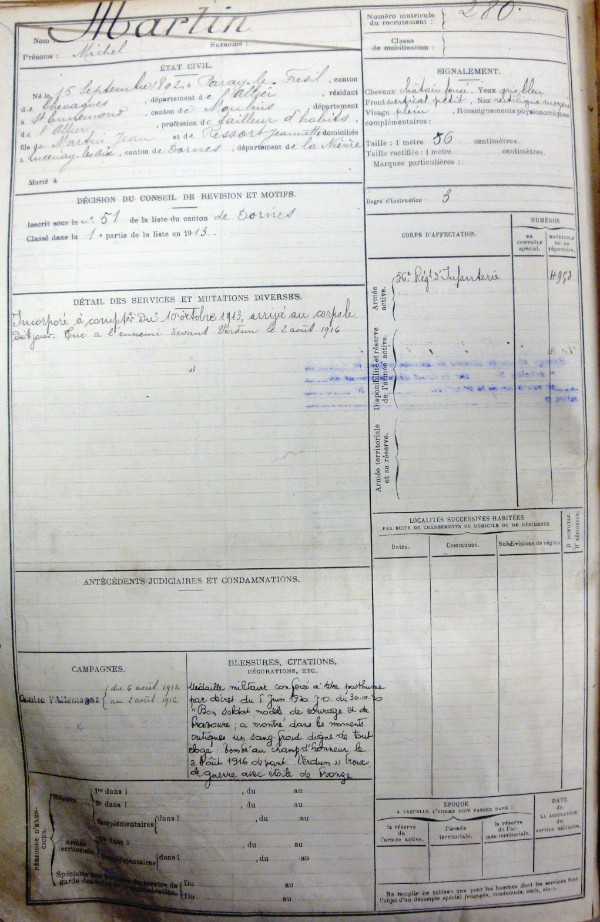 Nom Martin
Prénoms : Michel Surnoms :
Numéro matricule du recrutement : 280.
Classe de mobilisation :
ÉTAT CIVIL.
Né le 15 Septembre 1892, à Paray-le-Fresil, canton
de Chevagnes, département de l'Allier, résidant
à St Ennemond, canton de Moulins, département
de l'Allier, profession de tailleur d'habits,
fils de Martin Jean et de Tessort Jeannette domiciliés
à Lucenay-les-Aix, canton de Dornes, département de la Nièvre
Marié à
SIGNALEMENT.
Cheveux châtain foncé. Yeux gris bleu
Front vertical petit, Nez rectiligne moyen
Visage plein, Renseignements physionomiques
complémentaires :
Taille : 1 mètre 50 centimètres.
Taille rectifiée : 1 mètre centimètres.
Marques particulières :
Degré d'instruction : 3
DÉCISION DU CONSEIL DE REVISION ET MOTIFS.
Inscrit sous le n° 51 de la liste du canton de Dornes
Classé dans la 1e partie de la liste en 1913.
CORPS D'AFFECTATION.
NUMÉROS
AU CONTRÔLE spécial.
MATRICULE OU AU répertoire.
Armée active.
56e Régt d'Infanterie
Disponibilité et réserve de l'armée active.
Armée territoriale et sa réserve.
DÉTAIL DES SERVICES ET MUTATIONS DIVERSES.
Incorporé à compter du 10 octobre 1913, arrivé au corps le
dit jour. Tué à l'ennemi devant Verdun le 2 août 1916
LOCALITÉS SUCCESSIVES HABITÉES
PAR SUITE DE CHANGEMENTS DE DOMICILE OU DE RÉSIDENCE
Dates.
Communes.
Subdivisions de région
D. DOMICILE.
R. RÉSIDENCE.
ANTÉCÉDENTS JUDICIAIRES ET CONDAMNATIONS.
CAMPAGNES.
Contre l'Allemagne
BLESSURES, CITATIONS,
DÉCORATIONS, ETC.
Médaille militaire conférée à titre posthume
par décret du 5 Juin 1920 J.O. du 30.10.20
"Bon soldat modèle de courage et de
bravoure ; a montré dans les moments
critiques un sang froid digne de tout
éloge. Tombé au champ d'honneur le
2 Août 1916 devant Verdun" croix
de guerre avec étoile de bronze
PÉRIODES D'EXERCICES.
Réserve
1re dans l , du au
2e dans l , du au
Supplémentaires dans l , du au
Armée territoriale
dans l , du au
Supplémentaires dans l , du au
Du au
Du au
ÉPOQUE
A LAQUELLE L'HOMME DOIT PASSER DANS :
la réserve de l'armée active.
l'armée territoriale.
la réserve de l'armée territoriale.
DATE
DE LA LIBÉRATION DU service militaire.
Ne remplir ce tableau que pour les hommes dont les services font
l'objet d'un décompte spécial (engagés, condamnés, omis, etc.)